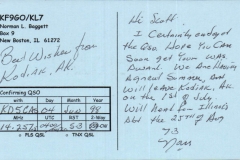 KF9GO/KL7
Norman L. Baggett
Box 9
New Boston, IL 61272
Best Wishes from
Kodiak, AK
Confirming QSO
04 98
MHz UTC RST 2-Way
14.257 5-3
PLS QSL TNX QSL
Hi Scott.
I Certainly enjoyed
the QSO. Hope You Can
Soon get Your WAS
Award. We are Having
Great Summer, and
Will leave Kodiak, AK
on the 1st of July
Will head for Illinois
Abt the 25th of Aug
73
Norm